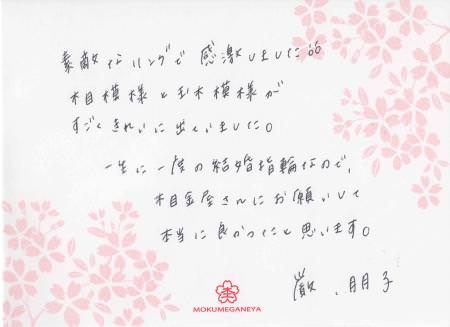 素敵なリングで感激しました。
木目模様と玉木模様が
すごくきれいに出ていました。
一生に一度の結婚指輪なので、
木目金屋さんにお願いして
本当に良かったと思います。
、朋子
MOKUMEGANEYA